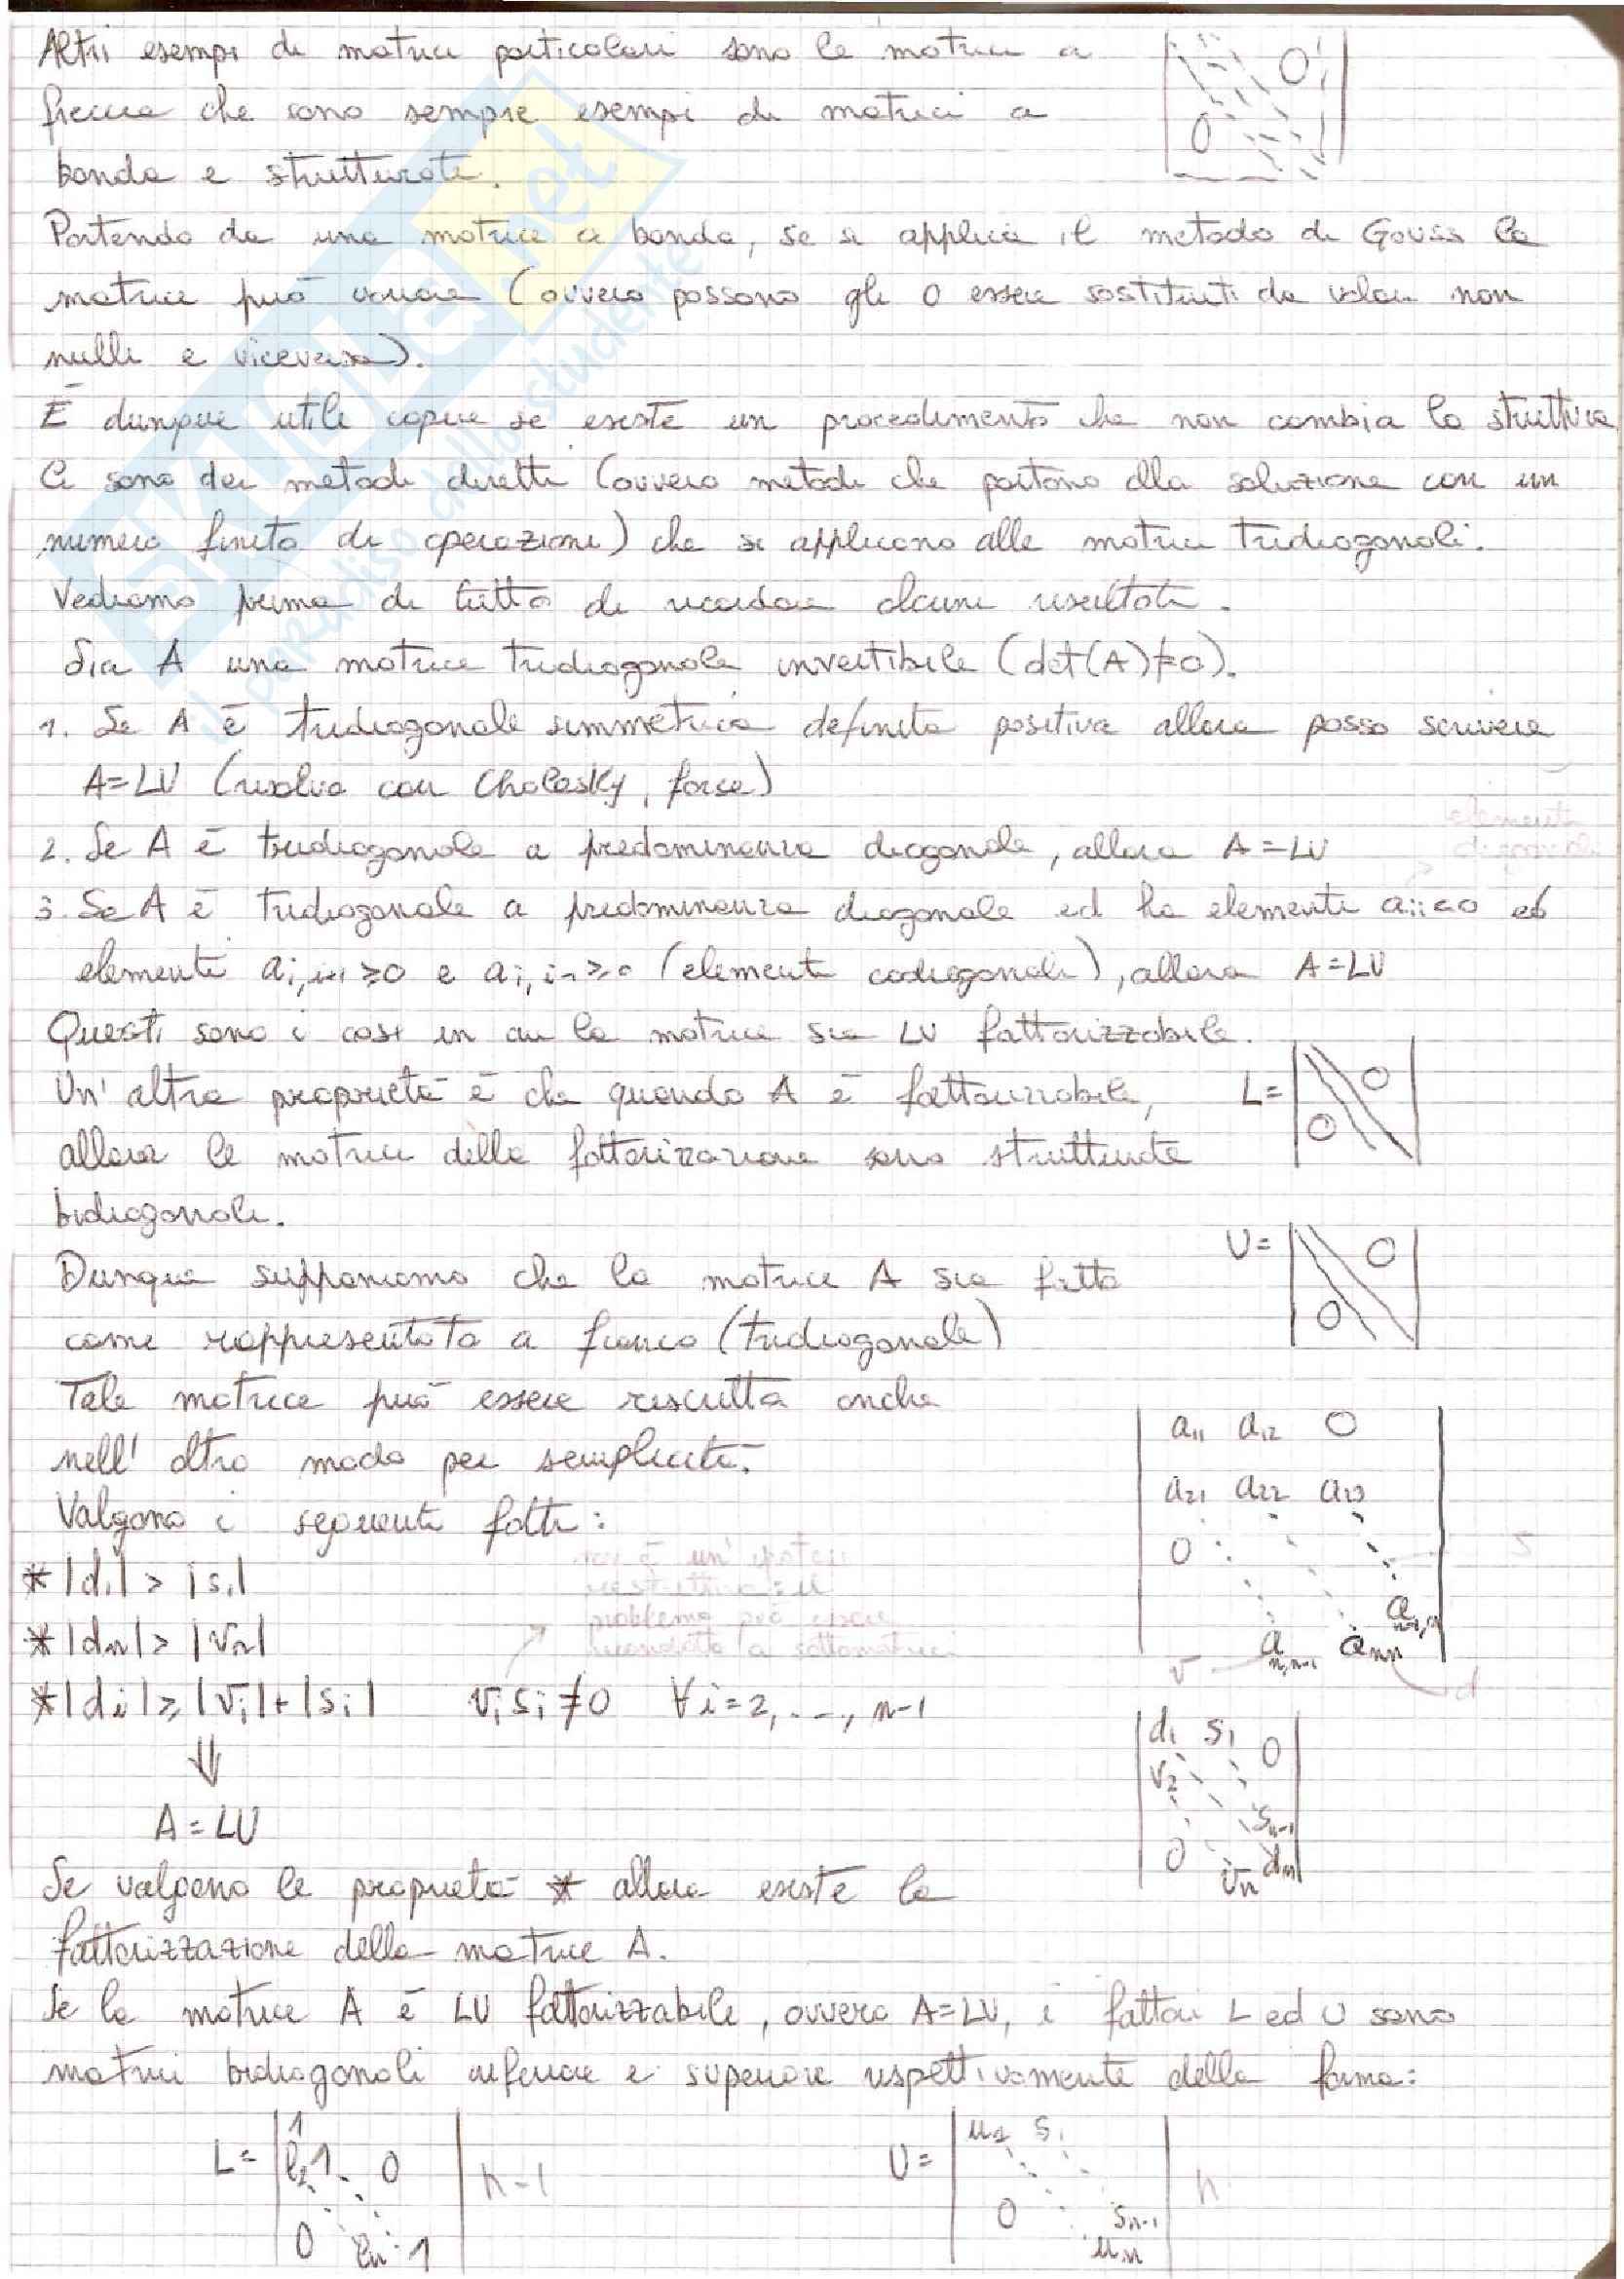 Altri esempi di matrici particolari sono le matrici a
freccia che sono sempre esempi di matrici a
banda e strutturate.
Partendo da una matrice a banda, se si applica il metodo di Gauss la
matrice può variare (ovvero possono gli 0 essere sostituiti da valori non
nulli e viceversa).
È dunque utile capire se esiste un procedimento che non cambia la struttura
Ci sono dei metodi diretti (ovvero metodi che portano alla soluzione con un
numero finito di operazioni) che si applicano alle matrici tridiagonali.
Vediamo prima di tutto di ricordare alcuni risultati.
Sia A una matrice tridiagonale invertibile (det(A)≠0).
1. Se A è tridiagonale simmetrica definita positiva allora posso scrivere
A=LU (risolvo con Cholesky, forse)
elementi
diagonali
2. Se A è tridiagonale a predominanza diagonale, allora A=LU
3. Se A è tridiagonale a predominanza diagonale ed ha elementi aii<0 ed
elementi ai,i+1 ≥0 e ai,i-1 ≥0 (elementi codiagonali), allora A=LU
Questi sono i casi in cui la matrice sia LU fattorizzabile.
Un'altra proprietà è che quando A è fattorizzabile, L= 0 0
allora le matrici della fattorizzazione sono strutturate
bidiagonali.
U= 0 0
Dunque supponiamo che la matrice A sia fatta
come rappresentato a fianco (tridiagonale)
Tale matrice può essere riscritta anche
nell'altro modo per semplicità.
a11 a12 0
a21 a22 a23
0 s
an-1,n
an,n-1 ann
v d
Valgono i seguenti fatti:
* |d1| > |s1|
non è un'ipotesi
restrittiva: il
problema può essere
ricondotto a sottomatrici
* |dn| > |vn|
* |di| ≥ |vi|+|si| vi si ≠0 ∀i=2,...,n-1
⇓
A = LU
d1 s1 0
v2
sn-1
0 vn dn
Se valgono le proprietà * allora esiste la
fattorizzazione della matrice A.
Se la matrice A è LU fattorizzabile, ovvero A=LU, i fattori L ed U sono
matrici bidiagonali inferiore e superiore rispettivamente della forma:
L= 1 l2 1 0 0 ln 1 n-1
U= u1 s1 0 sn-1 un n
SKUOLA.net
il paradiso dello studente